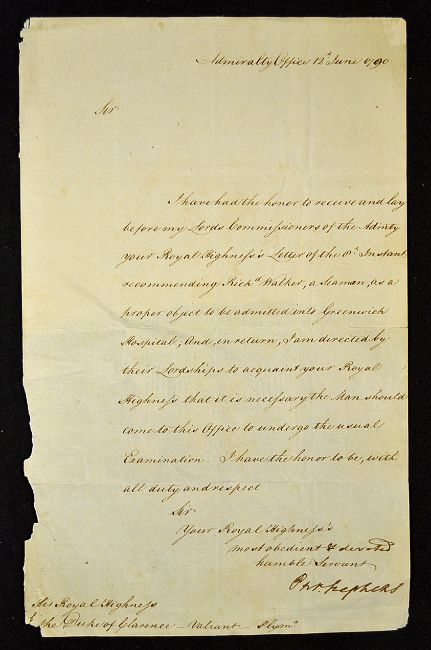 Admiralty Office 12th June 1790
Sir
I have had the honor to receive and lay
before my Lords Commissioners of the Admty
your Royal Highness's Letter of the Instant,
recommending Richd Walker, a Seaman, as a
proper object to be admitted into Greenwich
Hospital; And, in return, I am directed by
their Lordships to acquaint your Royal
Highness that it is necessary the Man should
come to this Office to undergo the usual
Examination. I have the honor to be, with
all duty and respect
Sir
Your Royal Highness's
most obedient & devoted
humble Servant
Stephens
His Royal Highness
the Duke of Clarence - Valiant - Plymo